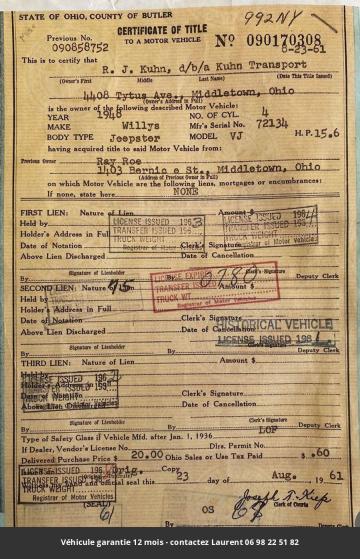 STATE OF OHIO, COUNTY OF BUTLER
992NY
CERTIFICATE OF TITLE
TO A MOTOR VEHICLE
Previous No.
090858752
No 090170308
8-23-61
This is to certify that
R. J. Kuhn, d/b/a Kuhn Transport
(Owner's First Middle Last Name) (Date This Title Issued)
4408 Tytus Ave., Middletown, Ohio
(Owner's Address in Full)
is the owner of the following described Motor Vehicle:
YEAR 1948 NO. OF CYL. 4
MAKE Willys Mfr's Serial No. 72134
BODY TYPE Jeepster MODEL VJ H.P. 15.6
having acquired title to said Motor Vehicle from:
Previous Owner Ray Roe
1403 Bernie e St., Middletown, Ohio
(Address of Previous Owner in Full)
on which Motor Vehicle are the following liens, mortgages or encumbrances:
If none, state here NONE
FIRST LIEN: Nature of Lien Amount $
Held by
LICENSE ISSUED 1963
Holder's Address in Full
TRANSFER ISSUED 195
TRUCK WEIGHT
Registrar of Motor Vehicles
LICENSE ISSUED 196
TRANSFER ISSUED
Registrar of Motor Vehicles
Date of Notation Clerk's Signature
Above Lien Discharged Date of Cancellation
Signature of Lienholder Clerk's Signature
By By Deputy Clerk
LICENSE EXPIRES
TRANSFER ISSUED
TRUCK WT.
Registrar of Motor Vehicles
SECOND LIEN: Nature Amount $
Held by
Holder's Address in Full
Date of Notation Clerk's Signature
Above Lien Discharged Date of Cancellation
HISTORICAL VEHICLE
LICENSE ISSUED 198
Signature of Lienholder
By By Deputy Clerk
THIRD LIEN: Nature of Lien Amount $
Held by
LICENSE ISSUED 196
Holder's Address in Full
TRANSFER ISSUED 195
Date of Notation Clerk's Signature
TRUCK WEIGHT
Above Lien Discharged Date of Cancellation
Signature of Lienholder Clerk's Signature
By By Deputy Clerk
Type of Safety Glass if Vehicle Mfd. after Jan. 1, 1936 LOF
If Dealer, Vendor's License No. Dlrs. Permit No.
Delivered Purchase Price $ 20.00 Ohio Sales or Use Tax Paid $ .60
LICENSE ISSUED 196 Orig. Copy
TRANSFER ISSUED 195
my hand and official seal this 23 day of Aug. , 1961
TRUCK WEIGHT
Registrar of Motor Vehicles
(SEAL)
61
Clerk of Courts
OS
By Deputy Clerk
Véhicule garantie 12 mois - contactez Laurent 06 98 22 51 82